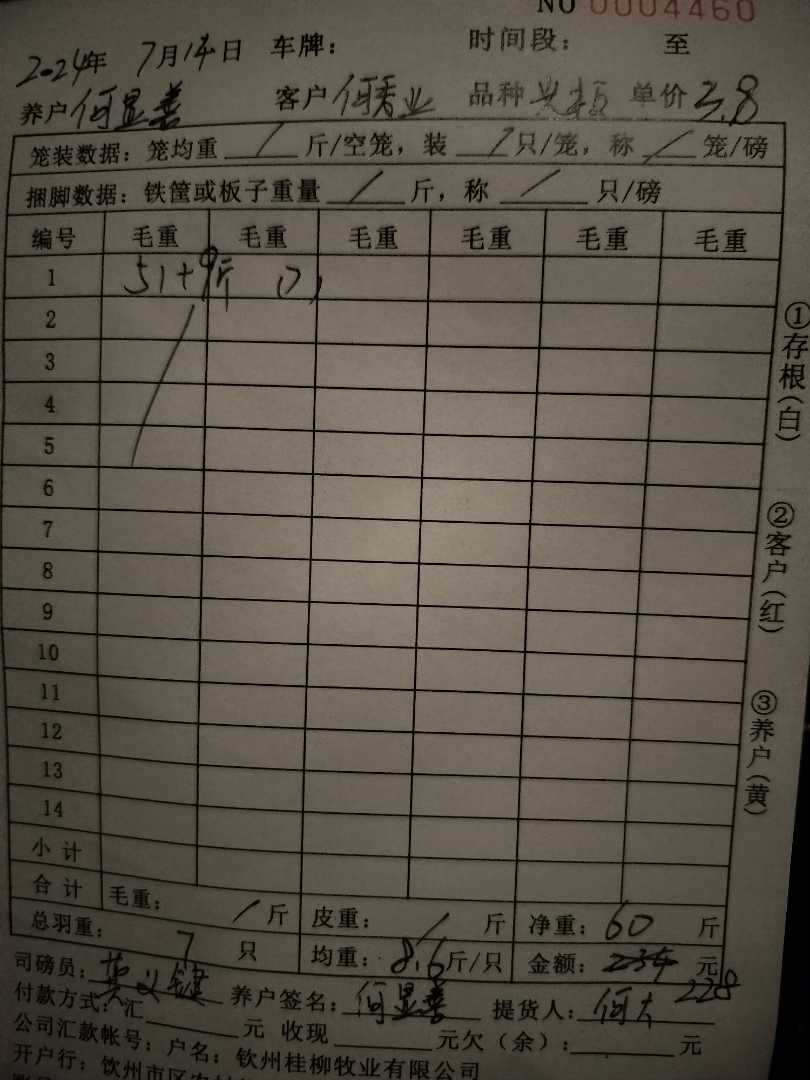 NO 0004460
2024年 7月14日 车牌： 时间段： 至
养户 何显善 客户 何秀业 品种 单价 3.8
笼装数据：笼均重 / 斤/空笼，装 / 只/笼，称 / 笼/磅
捆脚数据：铁筐或板子重量 / 斤，称 / 只/磅
编号 毛重 毛重 毛重 毛重 毛重 毛重
1 51+9斤
2
3
4
5
6
7
8
9
10
11
12
13
14
小计
合计 毛重： / 斤 皮重： / 斤 净重：60 斤
总羽重： 7 只 均重：8.6斤/只 金额：234 元
228
司磅员： 养户签名：何显善 提货人：何大
付款方式：汇 元 收现 元欠（余）： 元
公司汇款帐号：户名：钦州桂柳牧业有限公司
开户行：钦州市区农村
①存根（白）
②客户（红）
③养户（黄）